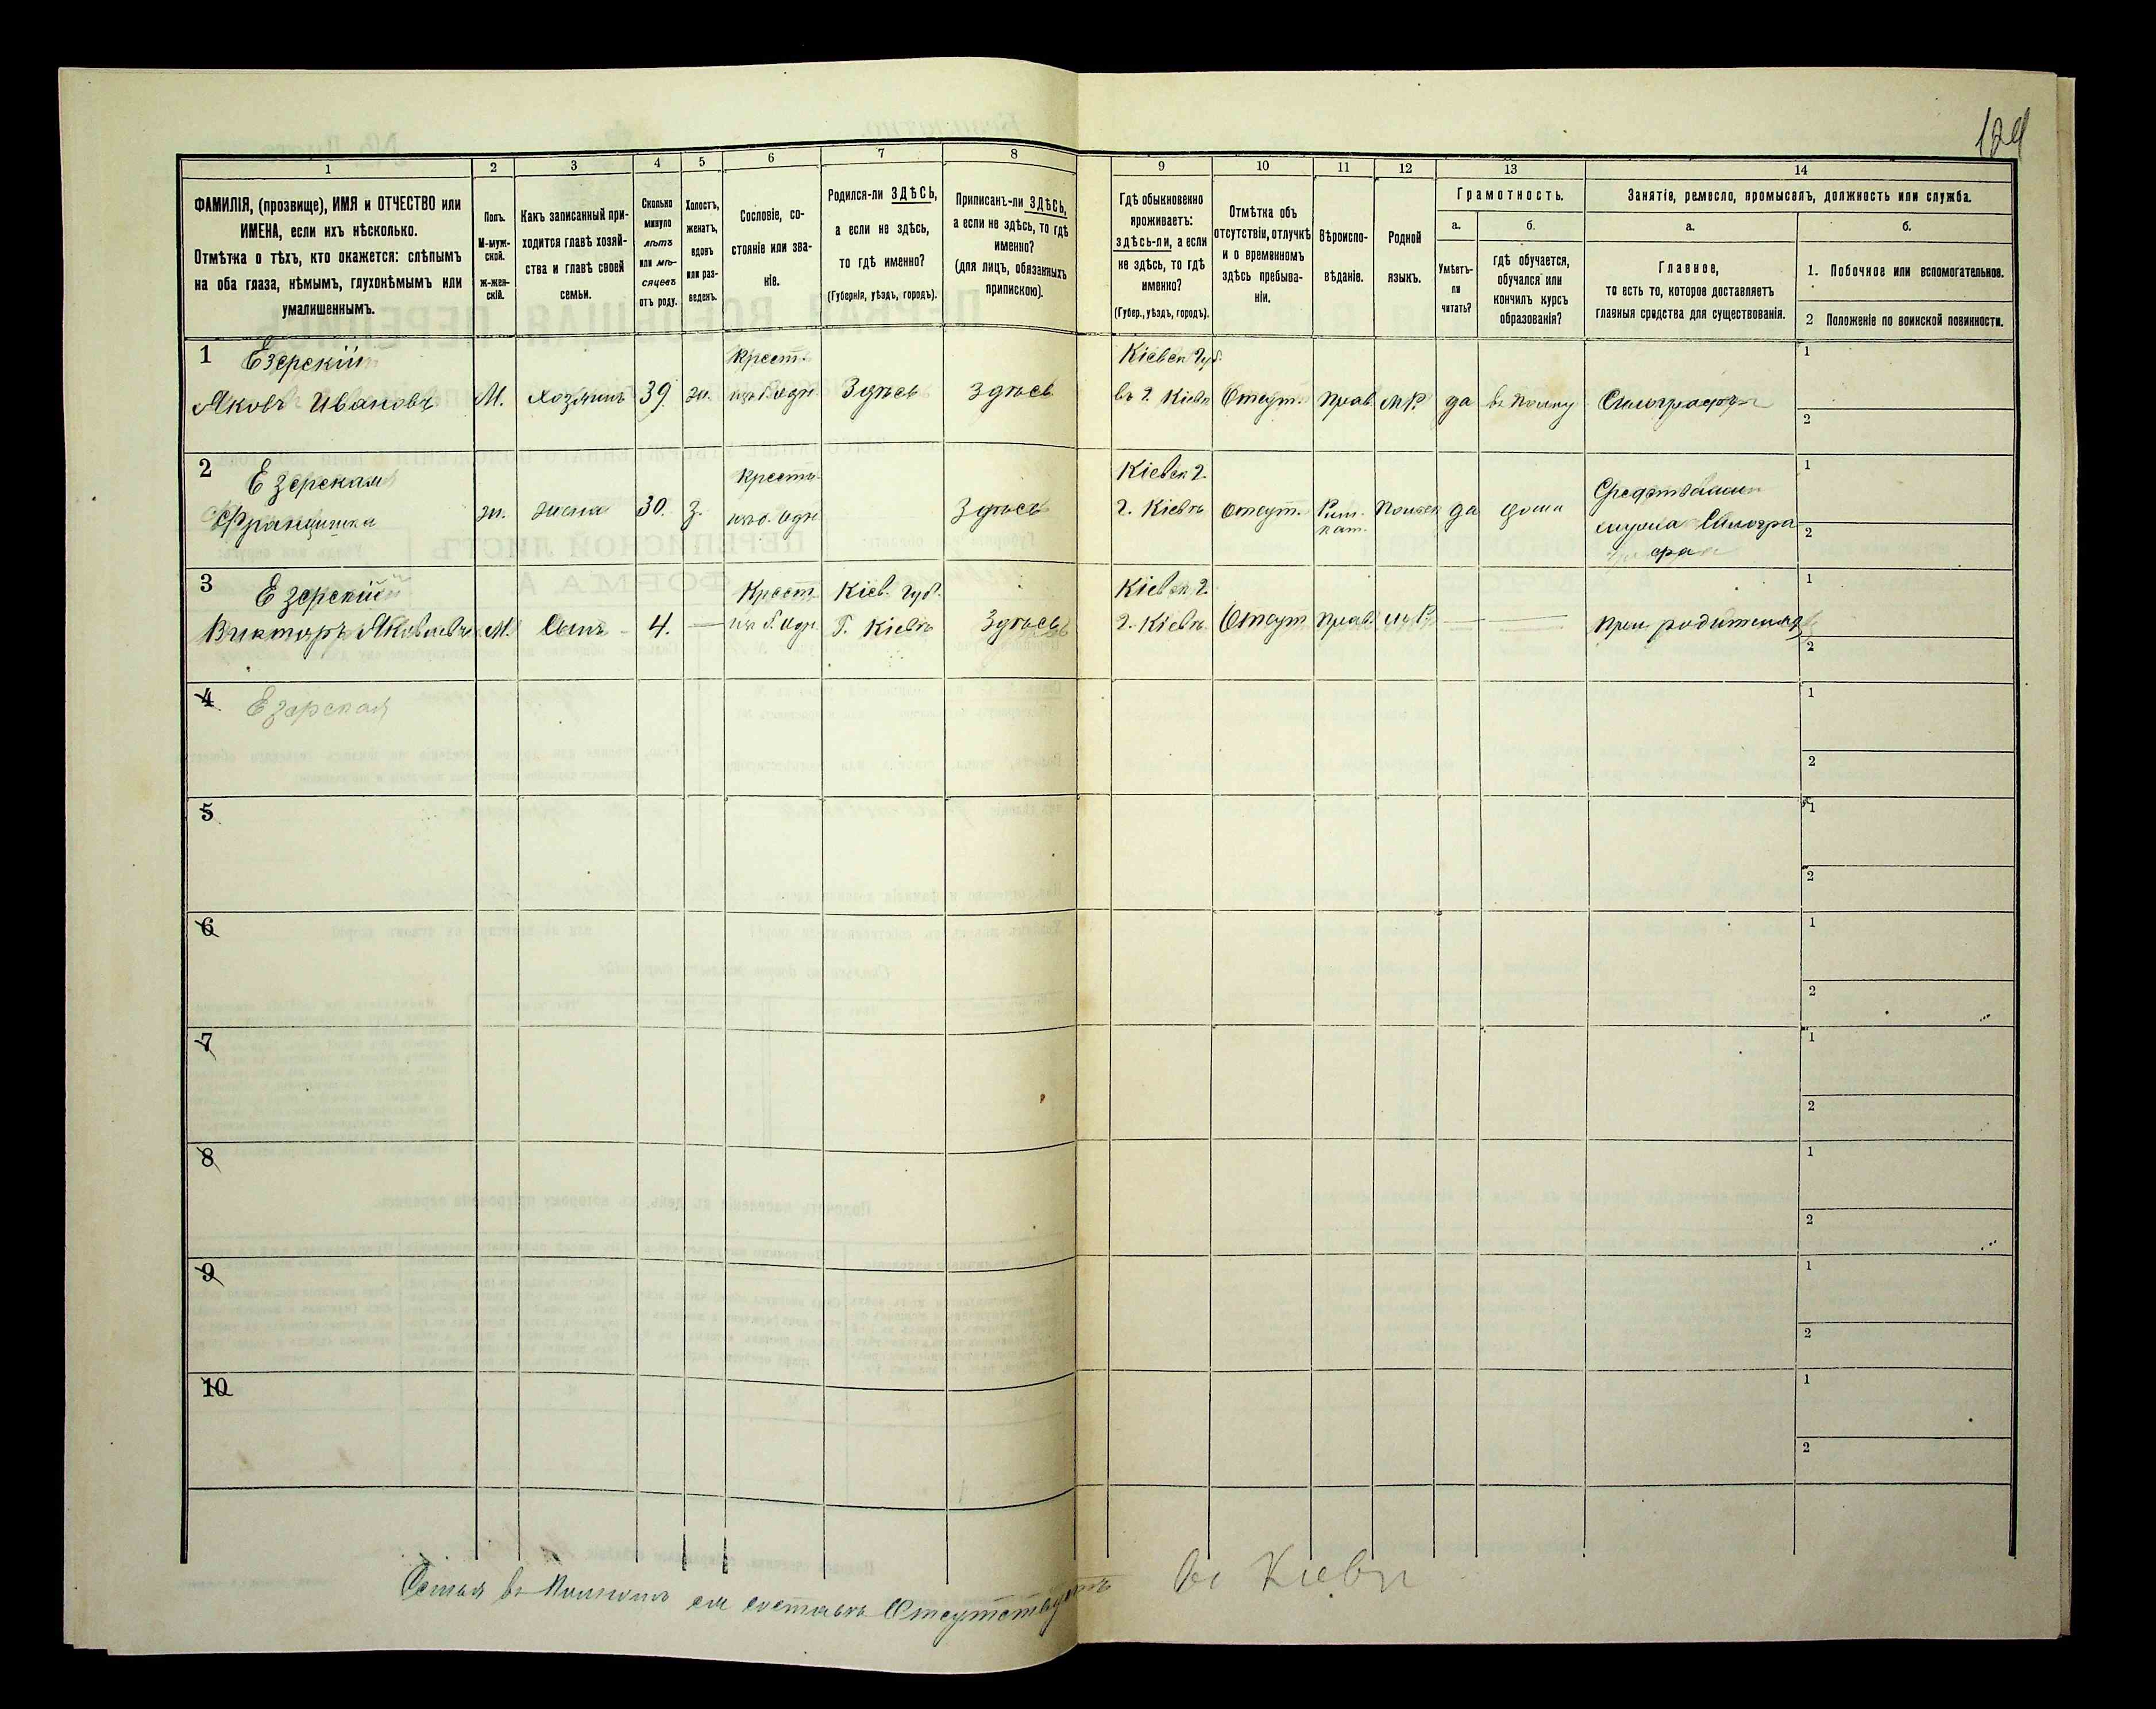 129
1
2
3
4
5
6
7
8
9
10
11
12
13
14
ФАМИЛІЯ, (прозвище), ИМЯ и ОТЧЕСТВО или
ИМЕНА, если ихъ нѣсколько.
Отмѣтка о тѣхъ, кто окажется: слѣпымъ
на оба глаза, нѣмымъ, глухонѣмымъ или
умалишеннымъ.
Полъ.
М-муж-
ской.
ж-жен-
скій.
Какъ записанный при-
ходится главѣ хозяй-
ства и главѣ своей
семьи.
Сколько
минуло
лѣтъ
или мѣ-
сяцевъ
отъ роду.
Холостъ,
женатъ,
вдовъ
или раз-
веденъ.
Сословіе, со-
стояніе или зва-
ніе.
Родился-ли ЗДѢСЬ,
а если не здѣсь,
то гдѣ именно?
(Губернія, уѣздъ, городъ).
Приписанъ-ли ЗДѢСЬ,
а если не здѣсь, то гдѣ
именно?
(для лицъ, обязанныхъ
припискою).
Гдѣ обыкновенно
проживаетъ:
здѣсь-ли, а если
не здѣсь, то гдѣ
именно?
(Губер., уѣздъ, городъ).
Отмѣтка объ
отсутствіи, отлучкѣ
и о временномъ
здѣсь пребыва-
ніи.
Вѣроиспо-
вѣданіе.
Родной
языкъ.
Грамотность.
а.
Умѣетъ-
ли
читать?
б.
гдѣ обучается,
обучался или
кончилъ курсъ
образованія?
Занятія, ремесло, промыселъ, должность или служба.
а.
Главное,
то есть то, которое доставляетъ
главныя средства для существованія.
б.
1. Побочное или вспомогательное.
2 Положеніе по воинской повинности.
1 Езерскій Крест. Кіевск Губ. 1
Яковъ Ивановъ М. хозяинъ 39. ж. Здѣсь Здѣсь въ г. Кіевѣ Отсут. прав. М.Р. да въ полку
2
2 Езерская Крестья. Кіевск г. 1
Францишка ж. жена 30. з. Здѣсь г. Кіевѣ отсут. Рим. кат. Польск да дома Средствами
2
3 Езерскій Крест. Кіев. Губ. Кіевск г. 1
Викторъ Яковлевъ М. Сынъ 4. — Г. Кіевѣ Здѣсь г. Кіевѣ Отсут прав. М.Р. — — при родителяхъ
2
4 Езерская 1
2
5 1
2
6 1
2
7 1
2
8 1
2
9 1
2
10 1
2
Семья въ полномъ ея составѣ Отсутствуетъ
во Кіеви